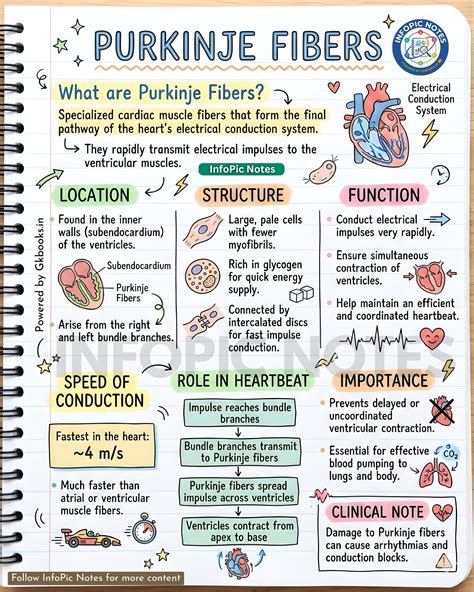 PURKINJE FIBERS
INFOPIC NOTES
What are Purkinje Fibers?
Specialized cardiac muscle fibers that form the final
pathway of the heart's electrical conduction system.
They rapidly transmit electrical impulses to the
ventricular muscles.
Electrical
Conduction
System
InfoPic Notes
LOCATION
Found in the inner
walls (subendocardium)
of the ventricles.
Subendocardium
Purkinje
Fibers
Arise from the right
and left bundle branches.
STRUCTURE
Large, pale cells
with fewer
myofibrils.
Rich in glycogen
for quick energy
supply.
Connected by
intercalated discs
for fast impulse
conduction.
FUNCTION
Conduct electrical
impulses very rapidly.
Ensure simultaneous
contraction of
ventricles.
Help maintain an efficient
and coordinated heartbeat.
Powered by Gkbooks.in
INFOPIC NOTES
SPEED OF
CONDUCTION
Fastest in the heart:
~4 m/s
Much faster than
atrial or ventricular
muscle fibers.
ROLE IN HEARTBEAT
Impulse reaches bundle
branches
Bundle branches transmit
to Purkinje fibers
Purkinje fibers spread
impulse across ventricles
Ventricles contract from
apex to base
IMPORTANCE
Prevents delayed or
uncoordinated
ventricular contraction.
Essential for effective
blood pumping to
lungs and body.
CO₂
CLINICAL NOTE
Damage to Purkinje fibers
can cause arrhythmias and
conduction blocks.
Follow InfoPic Notes for more content